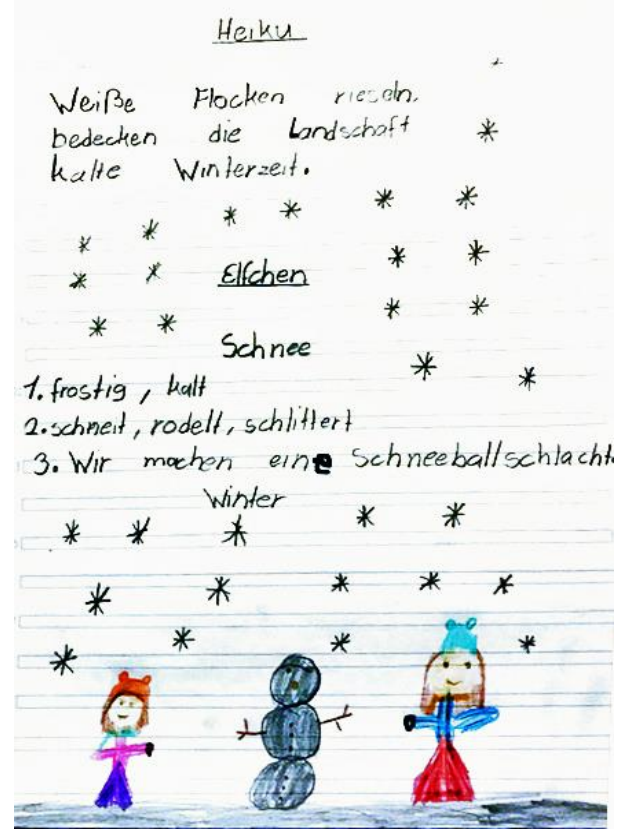 Heiku
Weiße Flocken rieseln.
bedecken die Landschaft
kalte Winterzeit.
Elfchen
Schnee
1. frostig, kalt
2. schneit, rodelt, schlittert
3. Wir machen eine Schneeballschlacht.
Winter